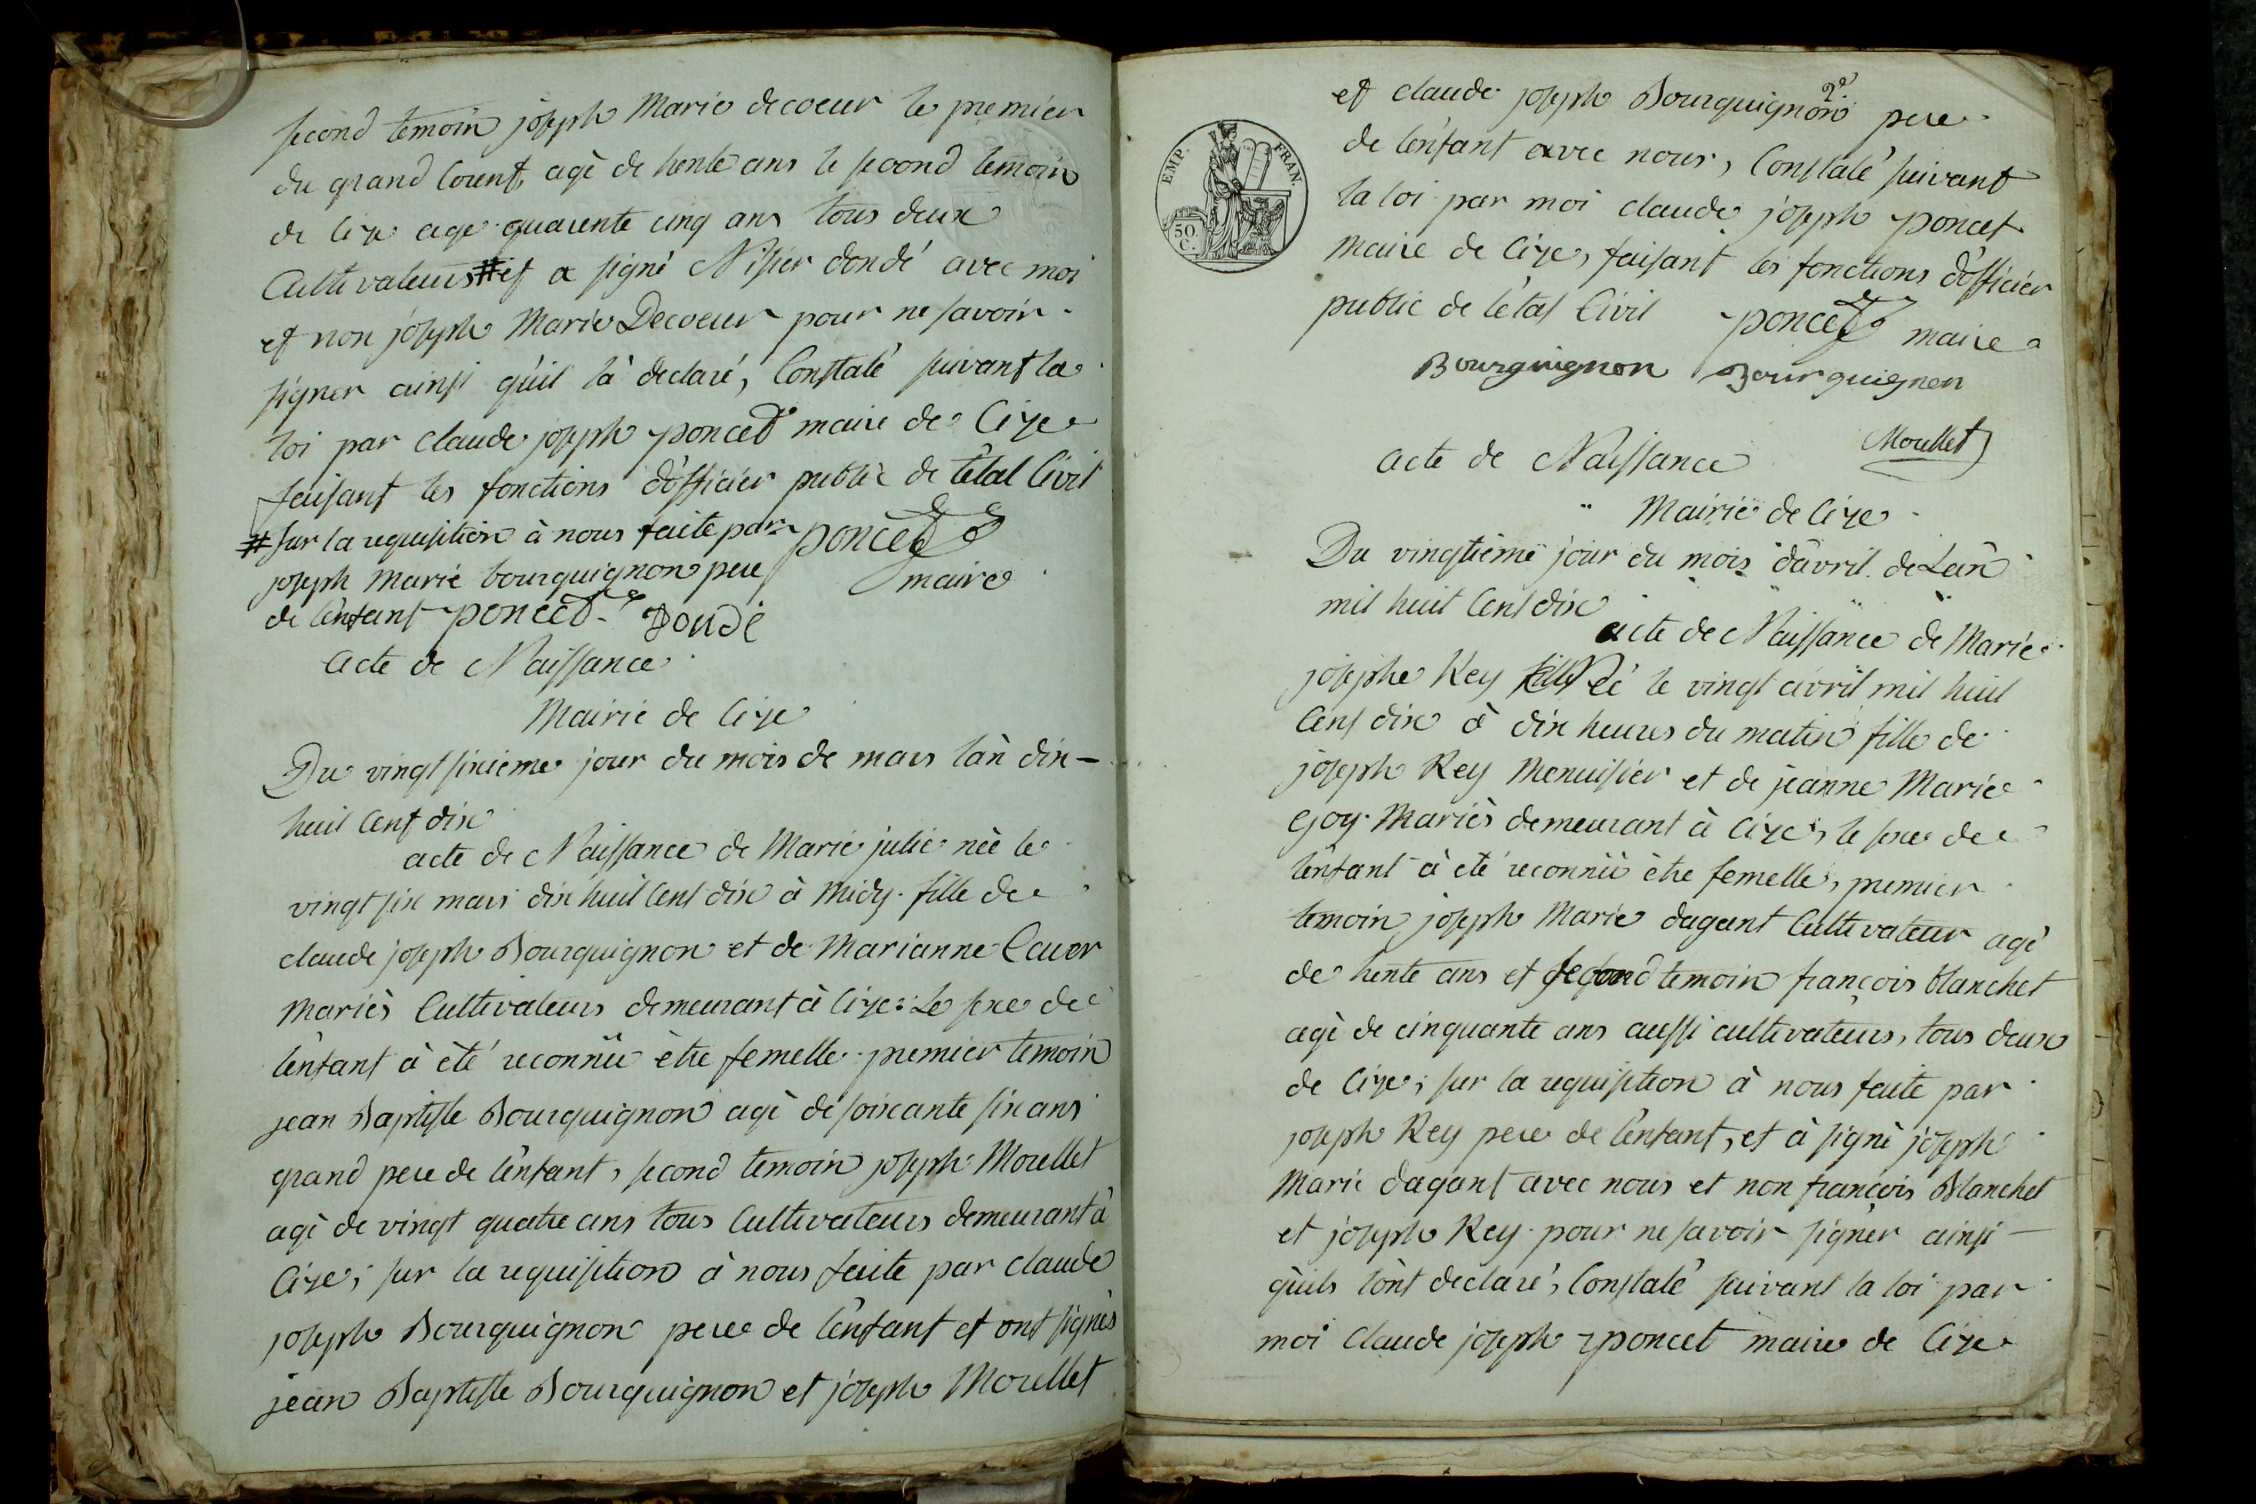 second temoin joseph Marie decoeur le premier
du grand Corent, agè de trente ans le second temoin
de Cize age quarente cinq ans tous deux
Cultivateurs # et a signé Nisier dondé avec moi
et non joseph Marie Decoeur pour ne savoir
signer ainsi qu'il là declaré, Constalé suivant la
loi par claude joseph poncet maire de Cize
faisant les fonctions d'officier public de l'état Civil
# sur la requisition à nous faite par
joseph Marie bourquignon pere
de l'enfant poncet
Dondé
poncet
maire
acte de Naissance
Mairie de Cize
Du vingt sixieme jour du mois de mars l'an dix-
huit Cent dix
acte de Naissance de Marie julie nèe le
vingt six mars dix huit Cent dix à midy fille de
claude joseph Bourquignon et de Marianne
Mariès Cultivateurs demeurant à Cize: Le sexe de
l'enfant à èté reconnüe ètre femelle premier temoin
jean Baptiste Bourquignon agè de soixante six ans
grand pere de l'enfant, second temoin joseph Morellet
agè de vingt quatre ans tous Cultivateurs demeurant à
Cize; sur la requisition à nous faite par claude
joseph Bourquignon pere de l'enfant et ont signès
jean Baptiste Bourquignon et joseph Morellet
et claude joseph Bourquignon pere
de l'enfant avec nous, Constalé suivant
la loi par moi claude joseph poncet
maire de Cize, faisant les fonctions d'officier
public de l'état Civil poncet maire
Bourguignon Bourquignon
Morellet
EMP. FRAN.
50. C.
acte de Naissance
Mairie de Cize
Du vingtième jour du mois d'avril de L'an
mil huit Cent dix
acte de Naissance de Marie
josephe Rey Né le vingt avril mil huit
Cent dix à dix heures du matin fille de
joseph Rey Menuisier et de jeanne Marie
Goy Mariès demeurant à Cize, le sexe de
l'enfant à eté reconnüe ètre femelle, premier
temoin joseph Marie dagant Cultivateur agè
de trente ans et second temoin françois blanchet
agè de cinquante ans aussi cultivateurs, tous deux
de Cize; sur la requisition à nous faite par
joseph Rey pere de l'enfant, et à signè joseph
Marie dagant avec nous et non françois Blanchet
et joseph Rey pour ne savoir signer ainsi
qu'ils l'ont declaré, Constalé suivant la loi par
moi Claude joseph poncet maire de Cize